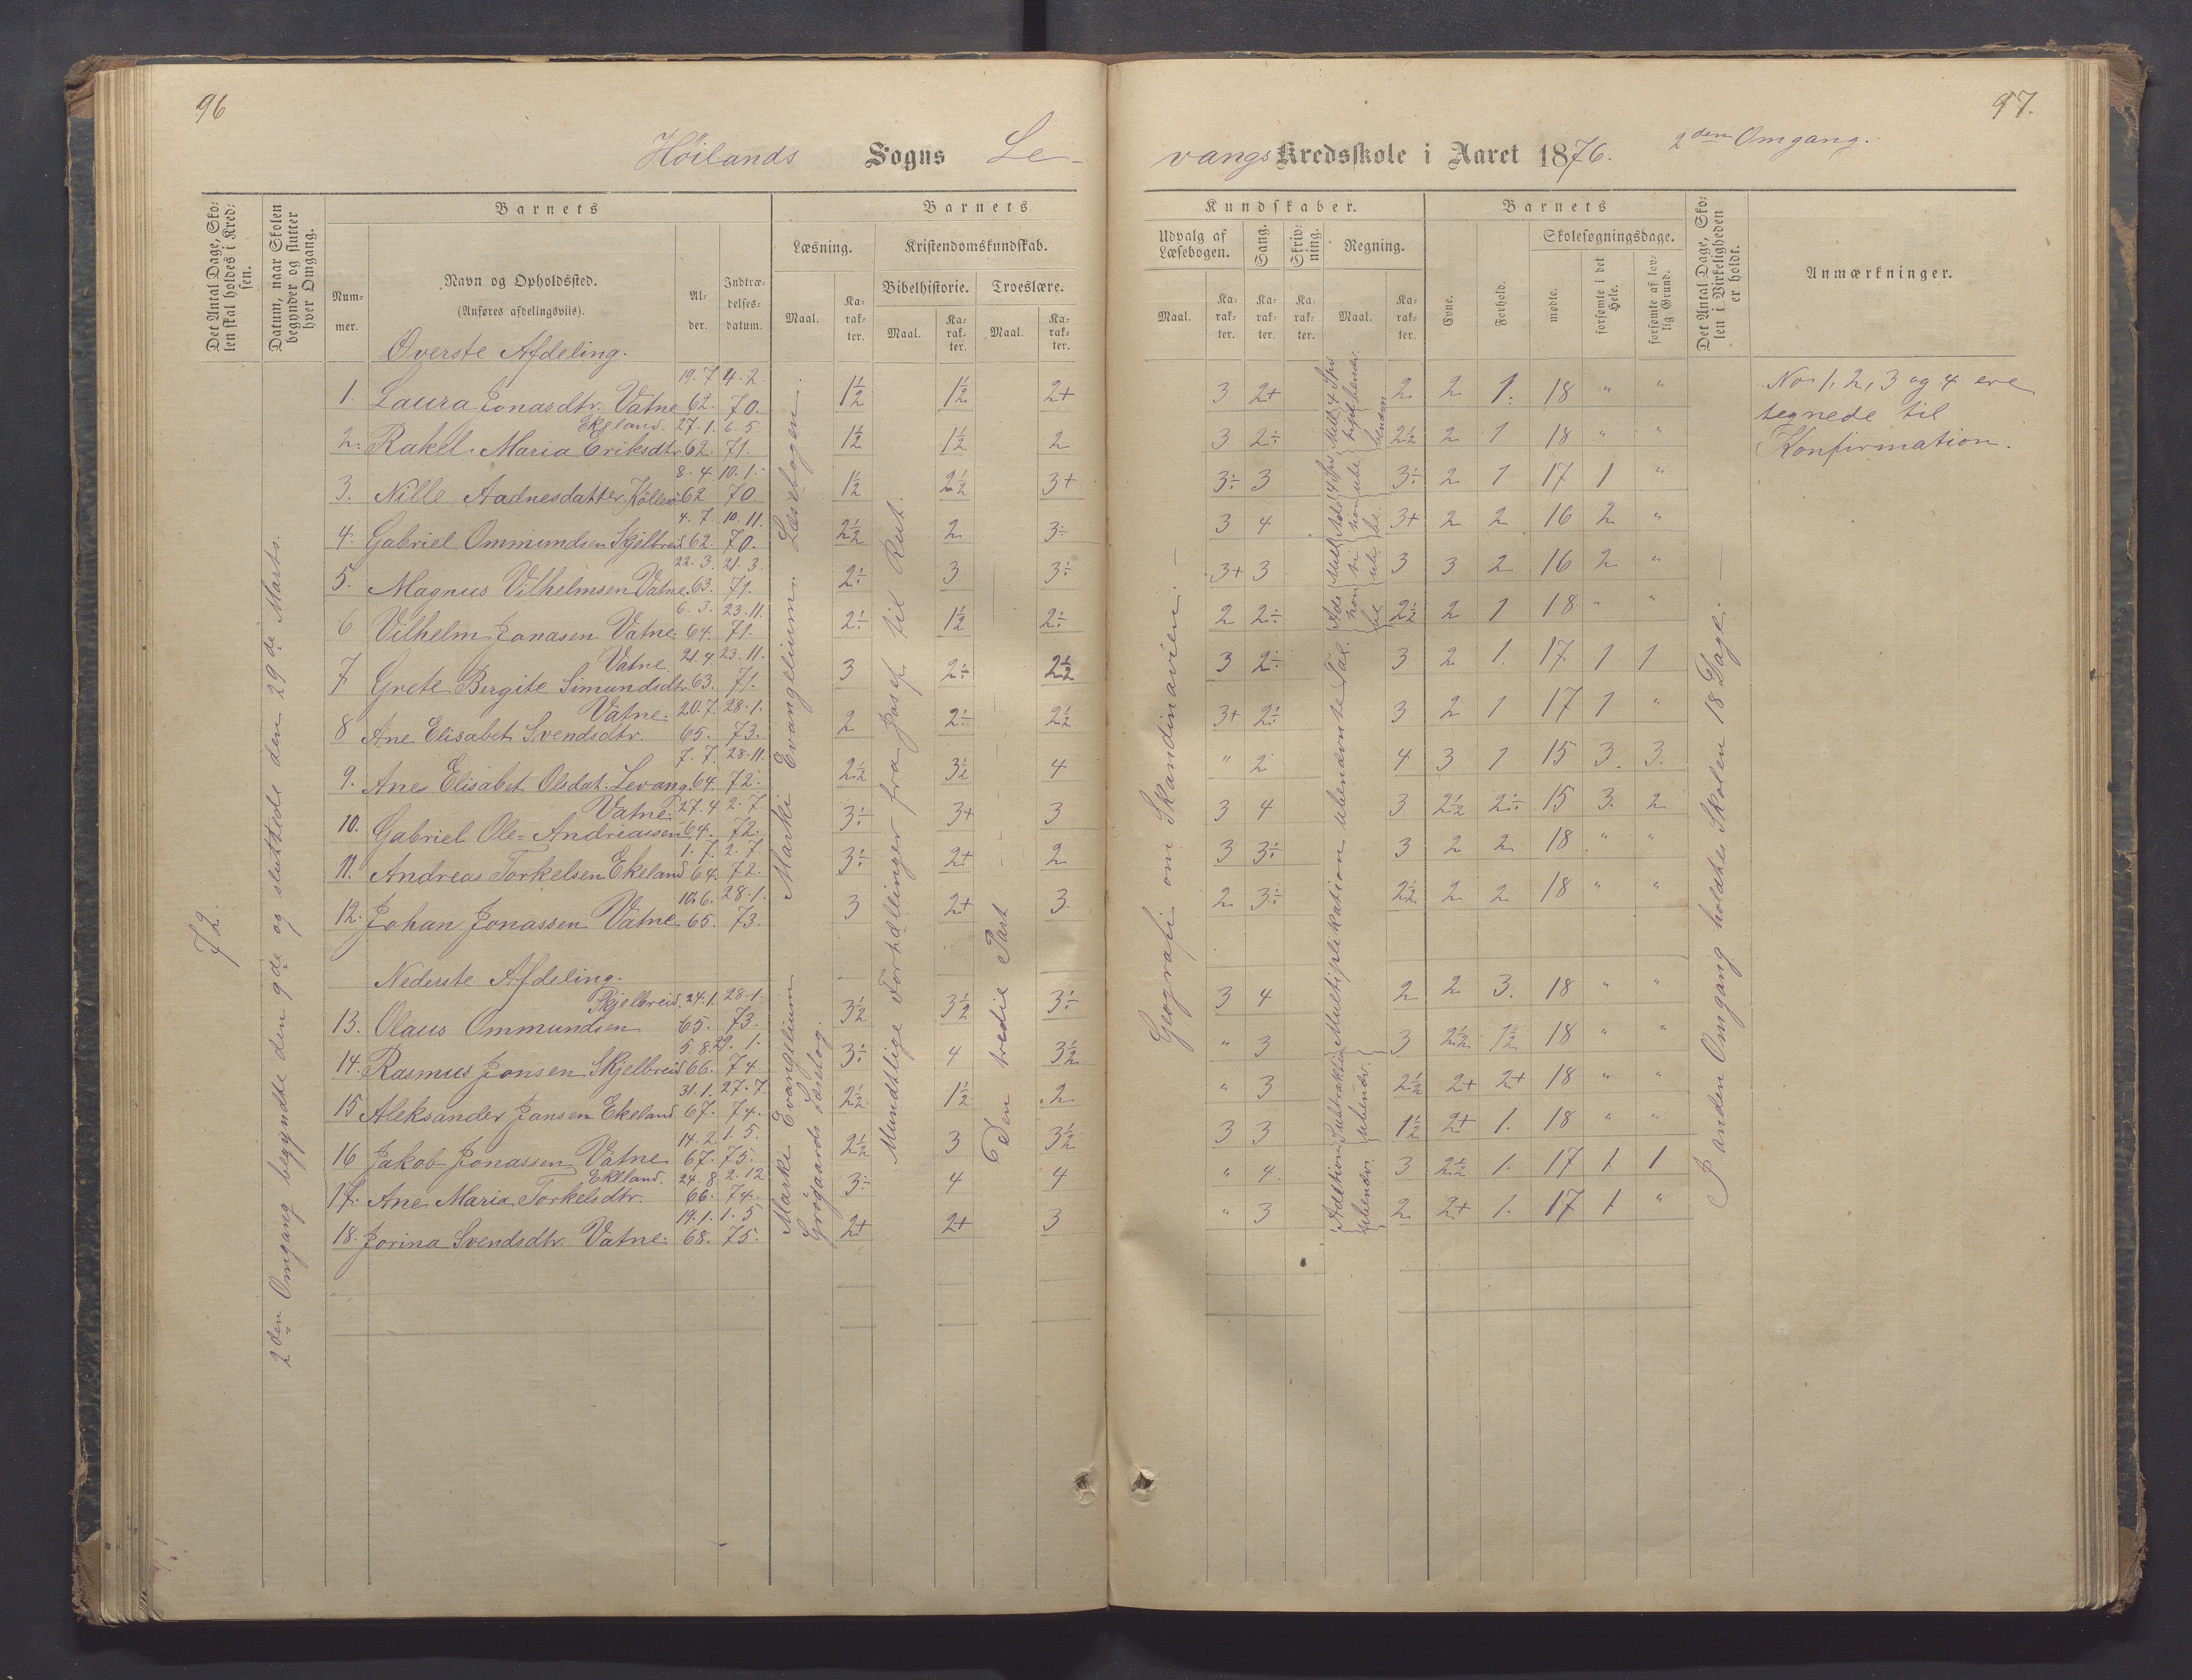 96
Höilands Sogns Le-
Det Antal Dage, Sko-
len skal holdes i Kred-
sen.
Datum, naar Skolen
begynder og slutter
hver Omgang.
Barnets
Num-
mer.
Navn og Opholdssted.
(Anføres afdelingsviis).
Al-
der.
Indtræ-
delses-
datum.
Barnets
Læsning.
Maal.
Ka-
rak-
ter.
Kristendomskundskab.
Bibelhistorie.
Maal.
Ka-
rak-
ter.
Troeslære.
Maal.
Ka-
rak-
ter.
72.
2den Omgang begyndte den 9de og sluttede den 29de Marts.
Överste Afdeling.
1. Laura Jonasdtr. Vatne 19.7 62. 4.2. 70. 1½ 1½ 2+
2. Rakel Maria Eriksdtr. Ekeland. 27.1. 62. 6.5. 71. 1½ 1½ 2
3. Nille Aadnesdatter 8.4 62 10.1. 70 1½ 2½ 3+
4. Gabriel Ommundsen Skjelbreid 4.7. 62. 10.11. 70. 2½ 2. 3÷
5. Magnus Vilhelmsen Vatne. 22.3. 63. 21.3. 71. 2÷ 3 3÷
6 Vilhelm Jonasen Vatne. 6.3. 64. 23.11. 71. 2÷ 1½ 2÷
7 Grete Bergite Simundsdtr. Vatne. 21.4. 63. 23.11. 71. 3 2÷ 2½
8 Ane Elisabet Svendsdtr. Vatne. 20.7. 65. 28.1. 73. 2 2÷ 2½
9. Ane Elisabet Olsdat. Levang. 7.7. 64. 28.11. 72. 2½ 3½ 4
10. Gabriel Ole-Andreassen Vatne. 27.4 64. 2.7. 72. 3÷ 3+ 3
11. Andreas Torkelsen Ekeland 1.7. 64. 2.7 72. 3÷ 2+ 2
12. Johan Jonassen Vatne. 10.6. 65. 28.1. 73. 3 2+ 3.
Nederste Afdeling.
13. Olaus Ommundsen Skjelbreid. 24.1. 65. 28.1. 73. 3½ 3½ 3÷
14. Rasmus Jonsen Skjelbreid 5.8. 66. 29.1. 74. 3÷ 4 3½
15 Aleksander Jansen Ekeland 31.1. 67. 27.7. 74. 2½ 1½ 2
16 Jakob Jonassen Vatne 14.2. 67. 1.5. 75. 2½ 3 3½
17. Ane Maria Torkelsdtr. Ekeland. 24.8. 66. 2.12 74. 3÷ 4 4
18. Jorina Svendsdtr. Vatne. 19.1. 68. 1.5. 75. 2+ 2+ 3
Marki Evangelium. Læsebogen.
Marki Evangelium
Grögaards Læsebog.
Mundtlige Fortællinger fra Josef til Rut.
Den tredie Part
97.
vangs Kredsskole i Aaret 1876. 2den Omgang.
Kundskaber.
Udvalg af
Læsebogen.
Maal.
Ka-
rak-
ter.
Sang.
Ka-
rak-
ter.
Skriv-
ning.
Ka-
rak-
ter.
Regning.
Maal.
Ka-
rak-
ter.
Barnets
Evne.
Forhold.
Skolesøgningsdage.
mødte.
forsømte i det
Hele.
forsømte af lov-
lig Grund.
Det Antal Dage, Sko-
len i Virkeligheden
er holdt.
Anmærkninger.
3 2+ 2 2 1. 18 " "
3 2÷ 2½ 2 1 18 " "
3÷ 3 3÷ 2 1 17 1 "
3 4 3+ 2 2 16 2 "
3+ 3 3 3 2 16 2 "
2 2÷ 2½ 2 1 18 " "
3 2÷ 3 2 1. 17 1 1
3+ 2÷ 3 2 1 17 1 "
" 2 4 3 1 15 3. 3.
3 4 3 2½ 2÷ 15 3. 2
3 3÷ 3 2 2 18 " "
2 3÷ 2½ 2 2 18 " "
3 4 2 2 3. 18 " "
" 3 3 2½ 1½ 18 " "
" 3 2½ 2+ 2+ 18 " "
3 3 1½ 2+ 1. 18 " "
" 4 3 2½ 1. 17 1 1
" 3 2 2+ 1. 17 1 "
Geografi om Skandinavien.
Multiplikation ubenævnte Tal.
Subtraktion
ubendv.
Addition
ubendv.
I anden Omgang holdtes Skolen 18 Dage.
No 1, 2, 3 og 4 ere
tegnede til
Konfirmation.